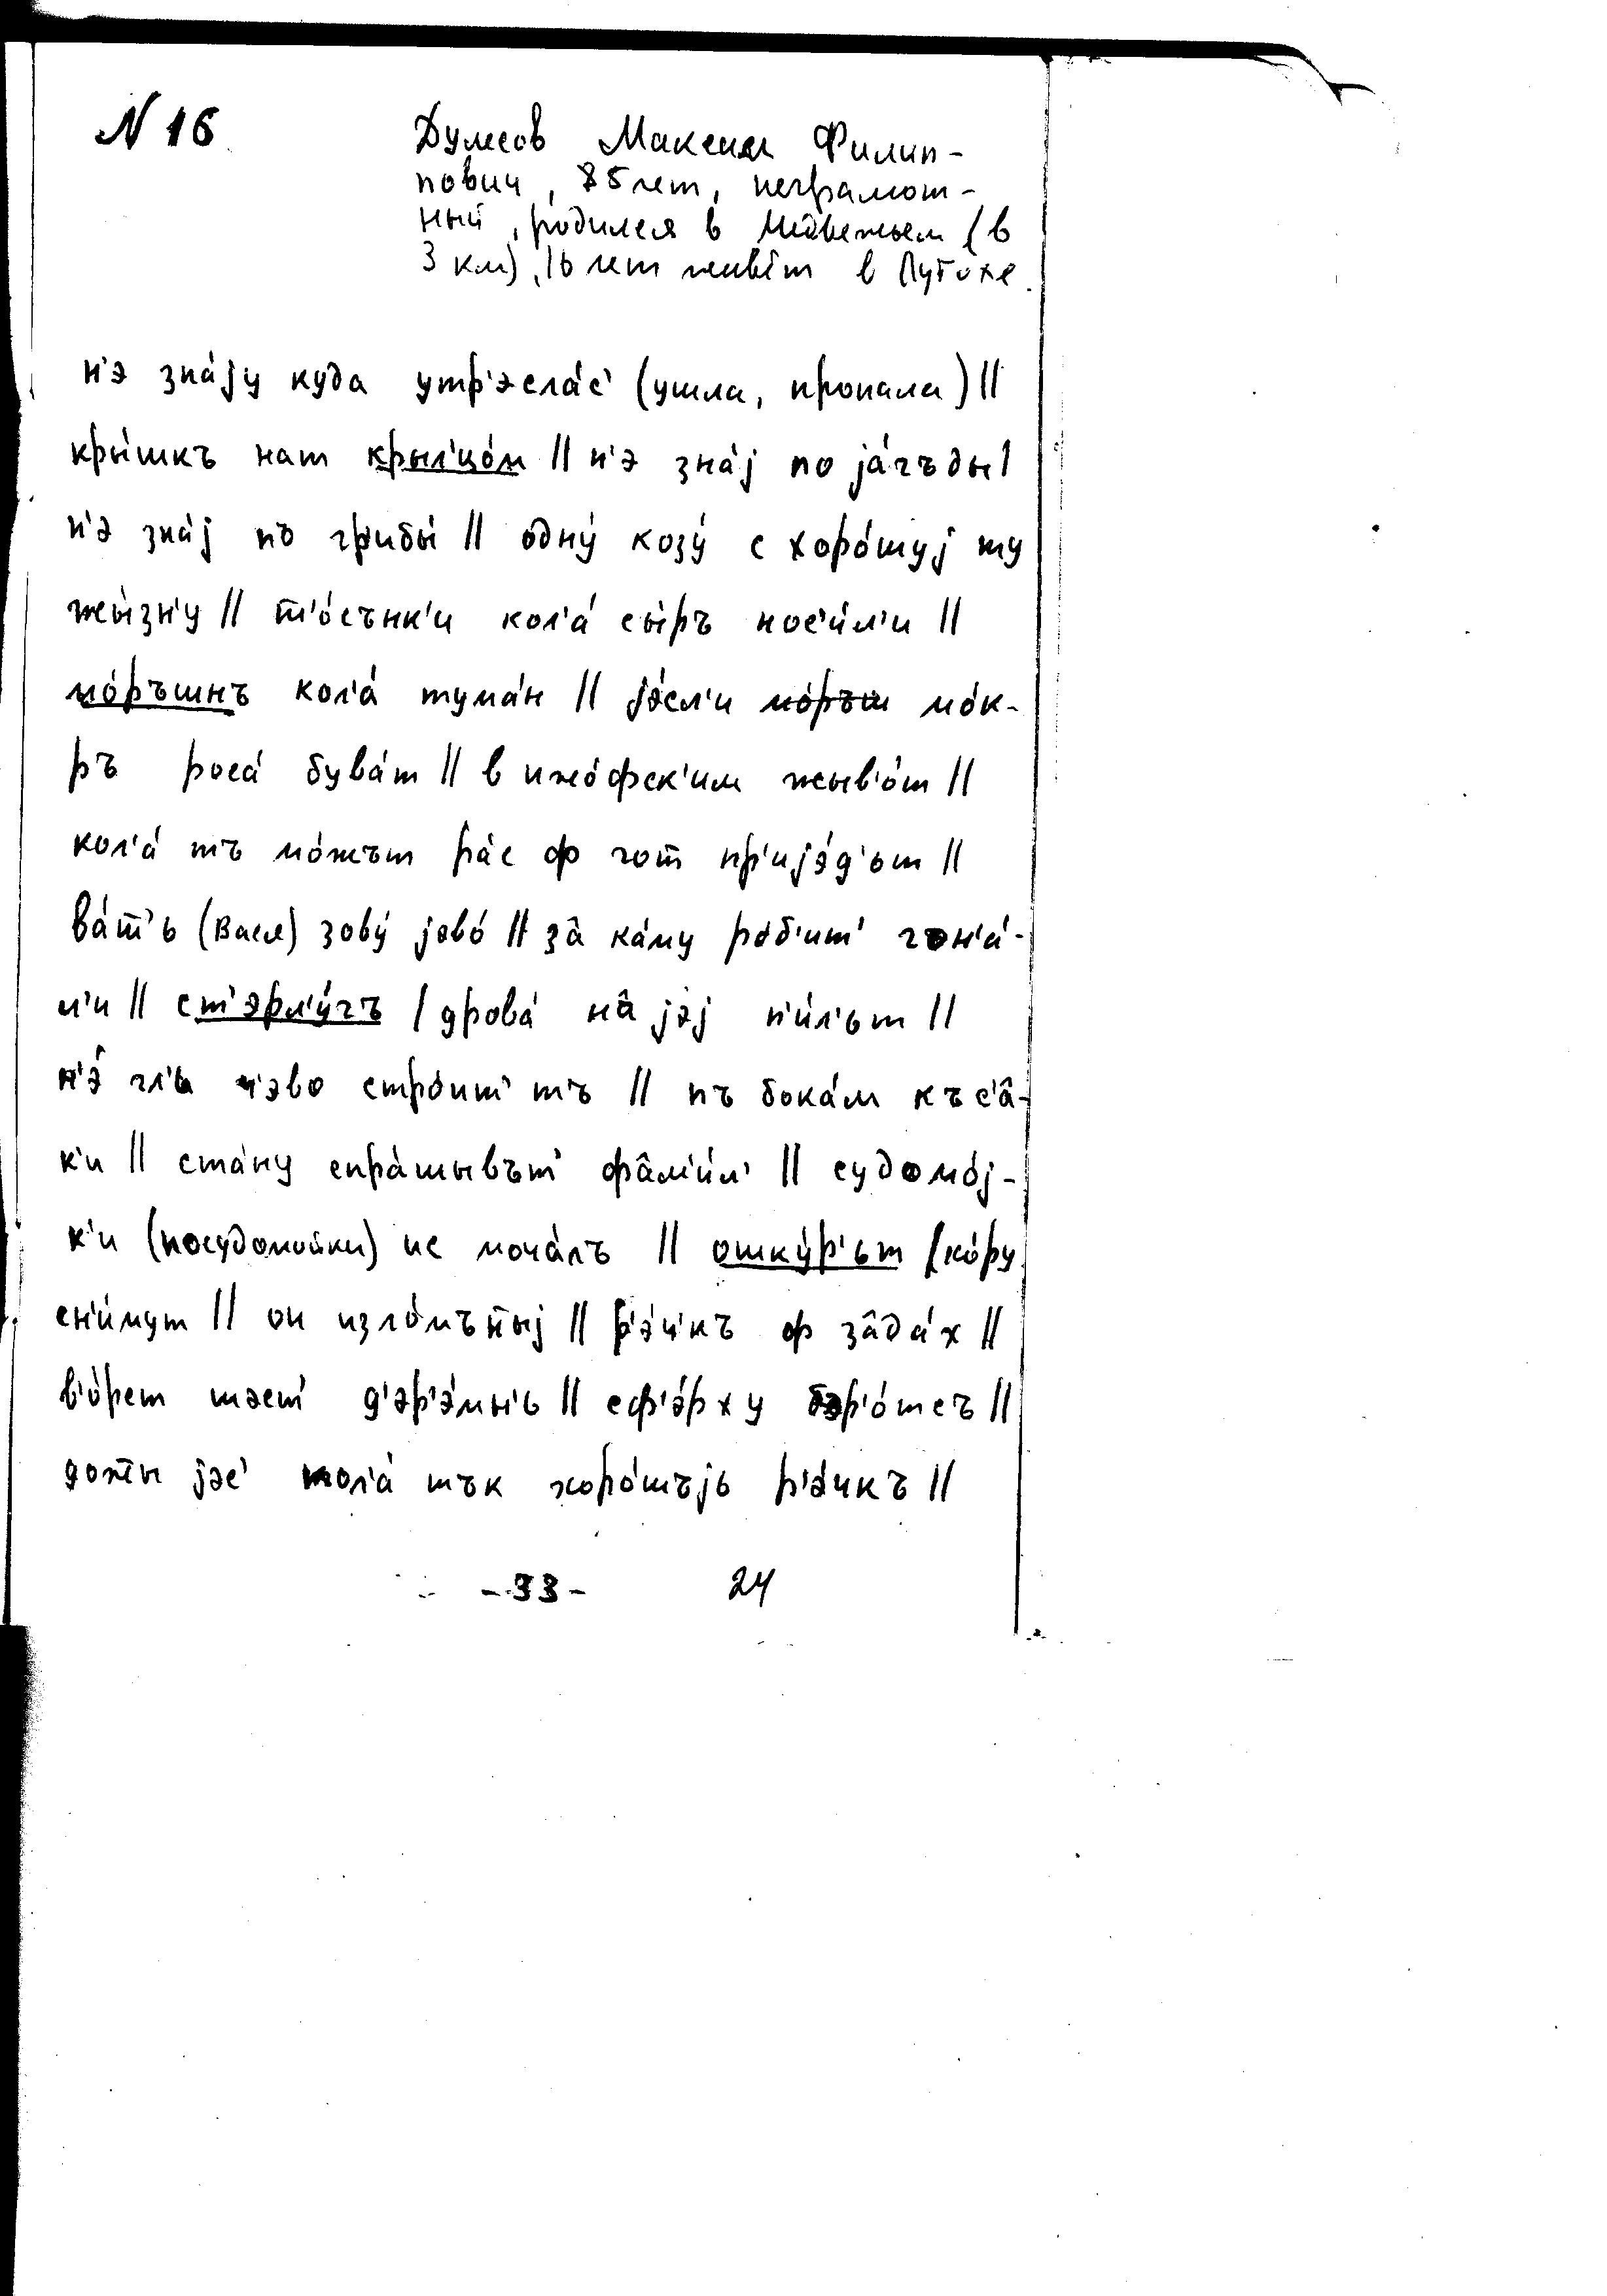 N 16
Думсов Максим Филип-
пович, 85 лет, неграмот-
ный, родился в Медвежьем (в
3 км), 16 лет живёт в Лутохе.
н'э зна́jу куда утр'эсла́с' (ушла, пропала) ||
кры́шкъ нат крыл'цо́м || н'э зна́j по jа́гъды |
н'э зна́j пъ грибы́ || одну́ козу́ с хоро́шуj ту
жы́зн'у || т̄'о́сънк'и кол'а́ сы́ръ нос'и́л'и ||
мо́ръшнъ кол'а́ тума́н || jэ́сл'и мо́к-
ръ роса́ бува́т || в ижо́фск'им жыв'о́т ||
кол'а́ тъ мо́жът ра́с ф гот̄ пр'иjэ́д'ьт ||
ва́т̄'ь (Вася) зову́ jово́ || за̂ ка́му ро́б'ит' гон'а́-
л'и || ст'эрл'у́гъ | дрова́ на̂ jэj п'и́л'ьт ||
н'э́ гл'ь ч'эво стро́ит' тъ || пъ бока́м къс'а̂-
к'и || ста́ну спра́шывът' фа̂м'и́л' || судомо́j-
к'и (посудомойки) ис моча́лъ || ошку́р'ьт (ко́ру
сн'и́мут || он изло́мън̄ыj || р'э́ч'къ ф за̂да́х ||
в'о́рст шэст' д'эр'э́мн'ь || сф'э́рху бэр'о́тсъ ||
дожны jэс' кол'а́ тък хоро́шъjь р'э́чкъ ||
- 33 -
24